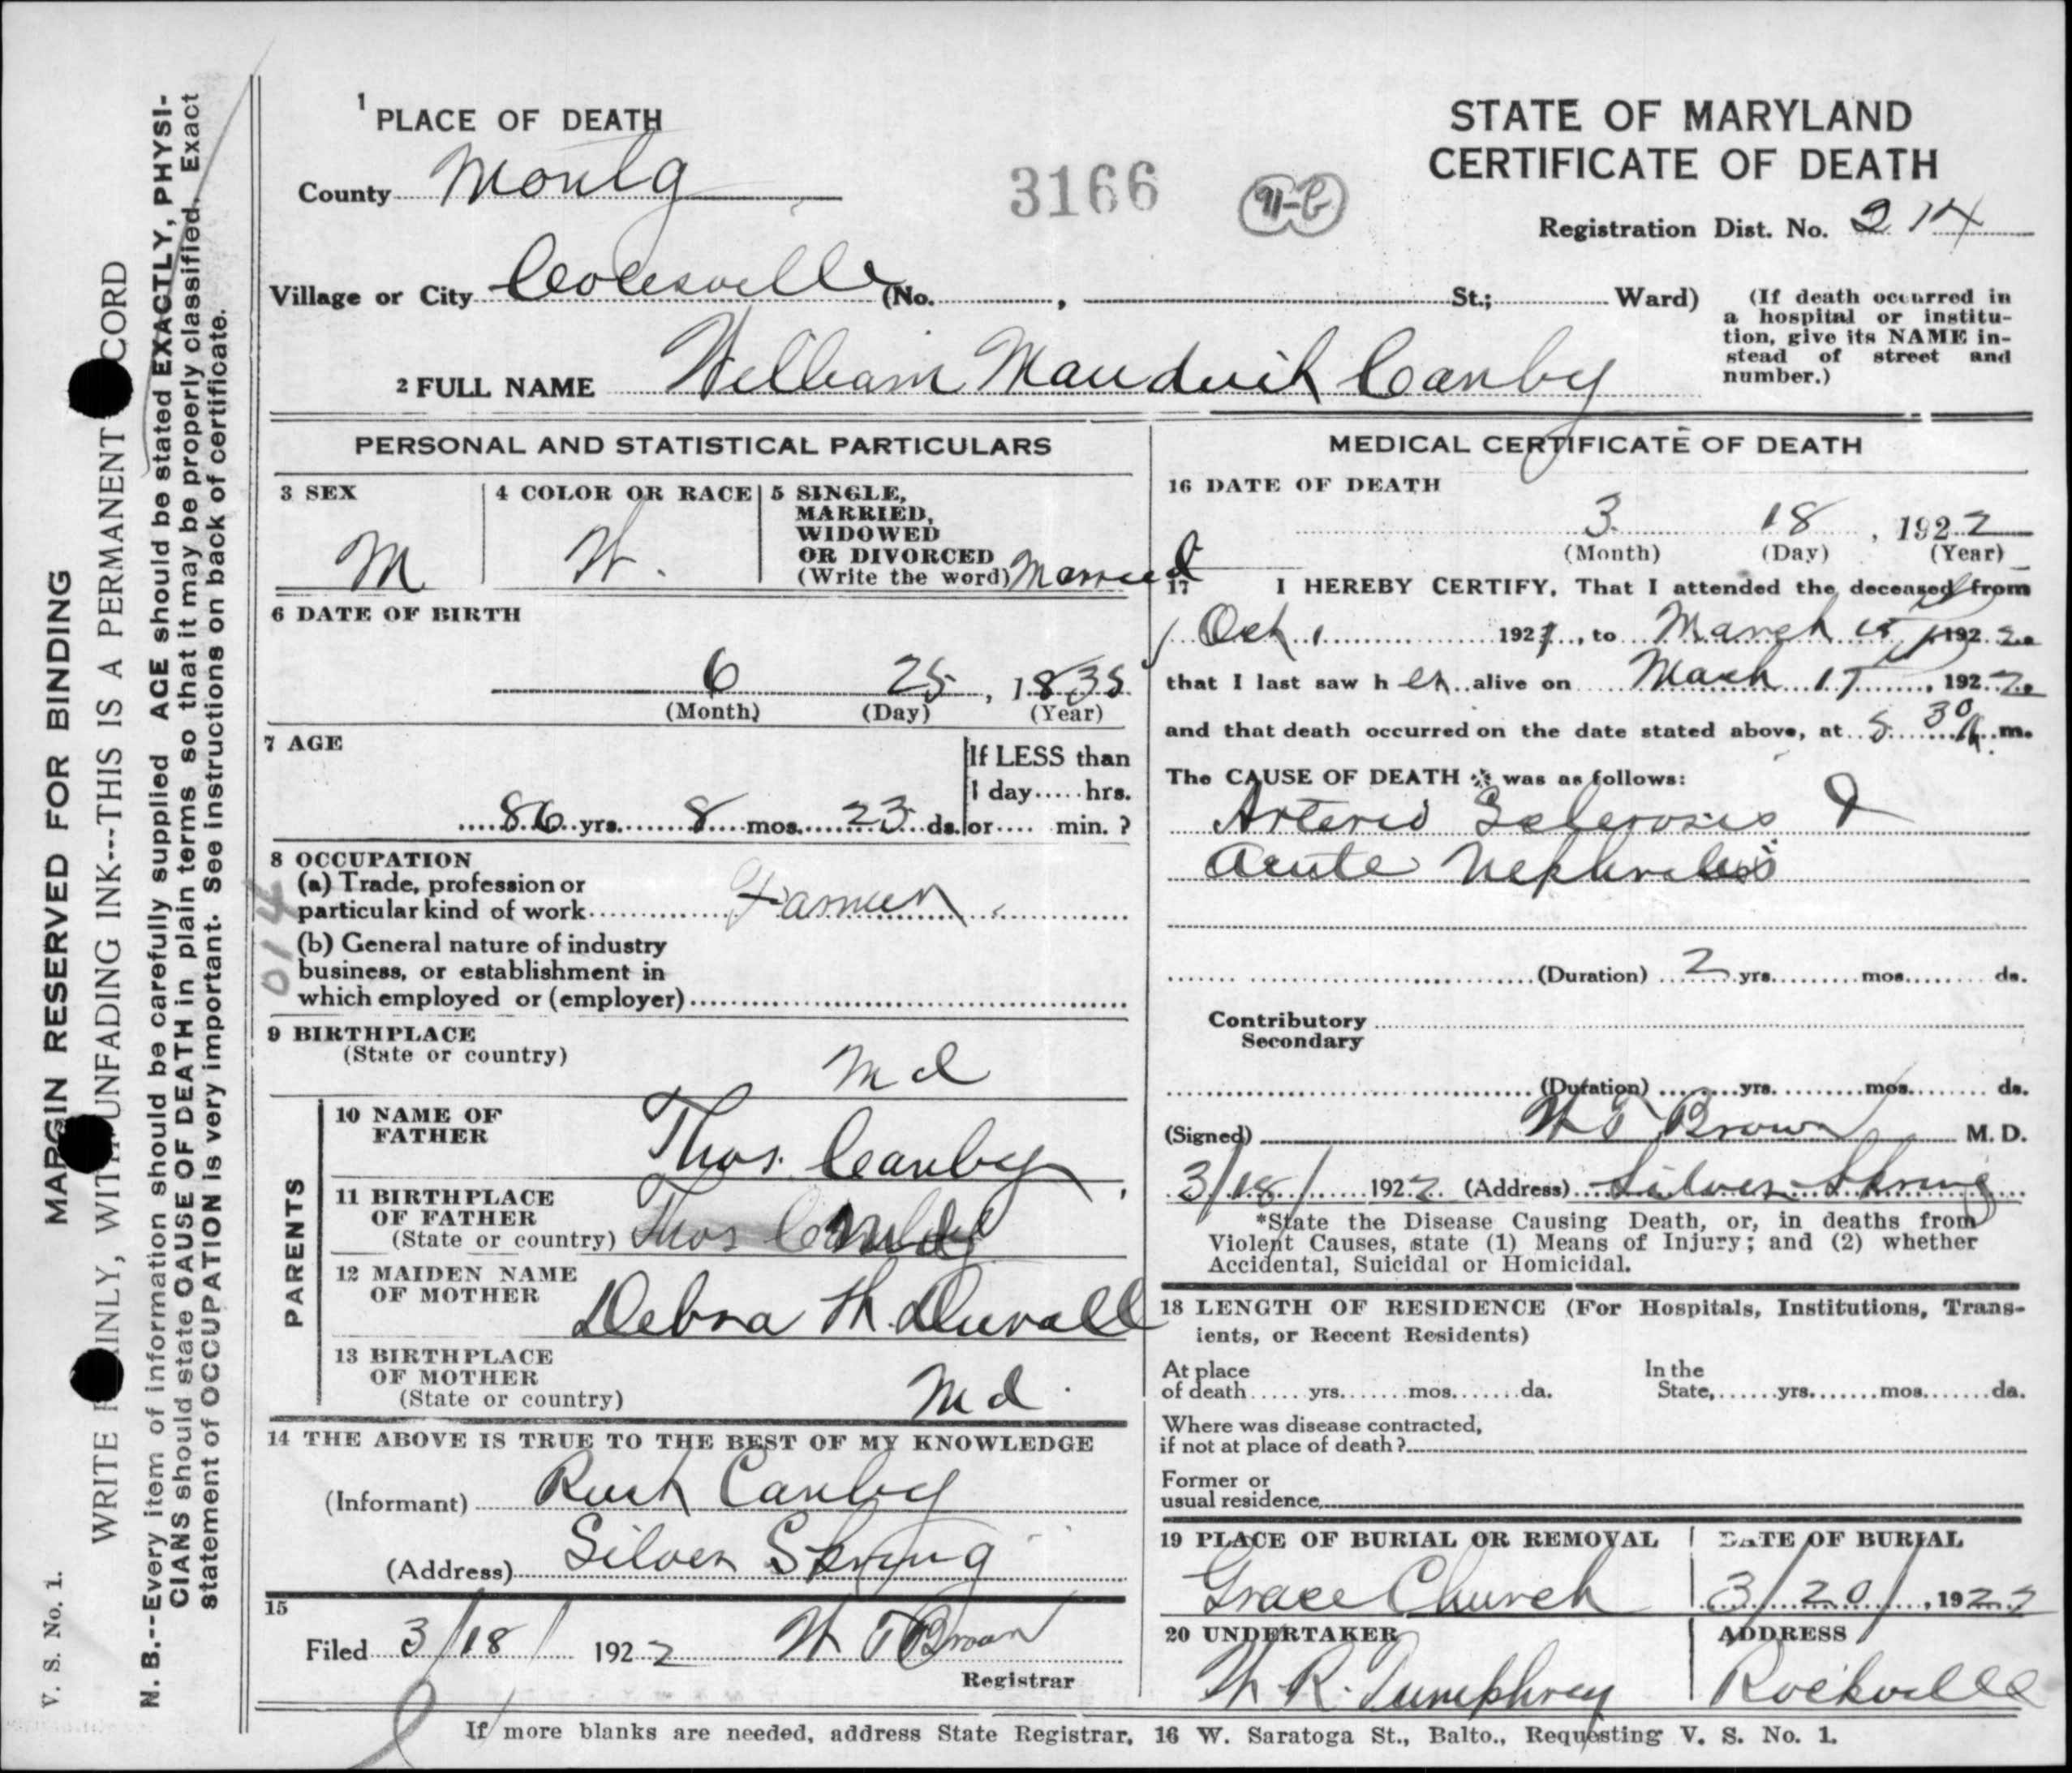 1 PLACE OF DEATH
County Montg
3166
91-b
STATE OF MARYLAND
CERTIFICATE OF DEATH
Registration Dist. No. 214
Village or City Colesville (No. , St.; Ward)
(If death occurred in
a hospital or institu-
tion, give its NAME in-
stead of street and
number.)
2 FULL NAME William Canby
PERSONAL AND STATISTICAL PARTICULARS
3 SEX
M
4 COLOR OR RACE
W.
5 SINGLE,
MARRIED,
WIDOWED
OR DIVORCED
(Write the word) Married
6 DATE OF BIRTH
6 25, 1835
(Month) (Day) (Year)
7 AGE
86 yrs. 8 mos. 23 ds.
If LESS than
1 day..... hrs.
or.... min. ?
8 OCCUPATION
(a) Trade, profession or
particular kind of work Farmer
(b) General nature of industry
business, or establishment in
which employed or (employer)
014
9 BIRTHPLACE
(State or country)
Md
PARENTS
10 NAME OF
FATHER
Thos. Canby
11 BIRTHPLACE
OF FATHER
(State or country) Thos Canby Md
12 MAIDEN NAME
OF MOTHER
Debra H. Duvall
13 BIRTHPLACE
OF MOTHER
(State or country)
Md.
14 THE ABOVE IS TRUE TO THE BEST OF MY KNOWLEDGE
(Informant) Canby
(Address) Silver Spring
15
Filed 3/18/ 1922 W T Brown
Registrar
MEDICAL CERTIFICATE OF DEATH
16 DATE OF DEATH
3 18, 1922
(Month) (Day) (Year)
17 I HEREBY CERTIFY, That I attended the deceased from
Oct 1 1921, to March 192 2
that I last saw h er alive on March 17, 192 2
and that death occurred on the date stated above, at 5 30 A. m.
The CAUSE OF DEATH * was as follows:
Arterio Sclerosis &
acute Nephritis
(Duration) 2 yrs. mos. ds.
Contributory
Secondary
(Duration) yrs. mos. ds.
(Signed) W T Brown M. D.
3/18/ 1922 (Address) Silver Spring
*State the Disease Causing Death, or, in deaths from
Violent Causes, state (1) Means of Injury; and (2) whether
Accidental, Suicidal or Homicidal.
18 LENGTH OF RESIDENCE (For Hospitals, Institutions, Trans-
ients, or Recent Residents)
At place
of death yrs. mos. da.
In the
State, yrs. mos. da.
Where was disease contracted,
if not at place of death?
Former or
usual residence
19 PLACE OF BURIAL OR REMOVAL
Grace Church
DATE OF BURIAL
3/20/, 1922
20 UNDERTAKER
W. R. Pumphrey
ADDRESS
Rockville
If more blanks are needed, address State Registrar, 16 W. Saratoga St., Balto., Requesting V. S. No. 1.
V. S. No. 1.
MARGIN RESERVED FOR BINDING
WRITE PLAINLY, WITH UNFADING INK---THIS IS A PERMANENT RECORD
N. B.--Every item of information should be carefully supplied AGE should be stated EXACTLY, PHYSI-
CIANS should state CAUSE OF DEATH in plain terms so that it may be properly classified. Exact
statement of OCCUPATION is very important. See instructions on back of certificate.